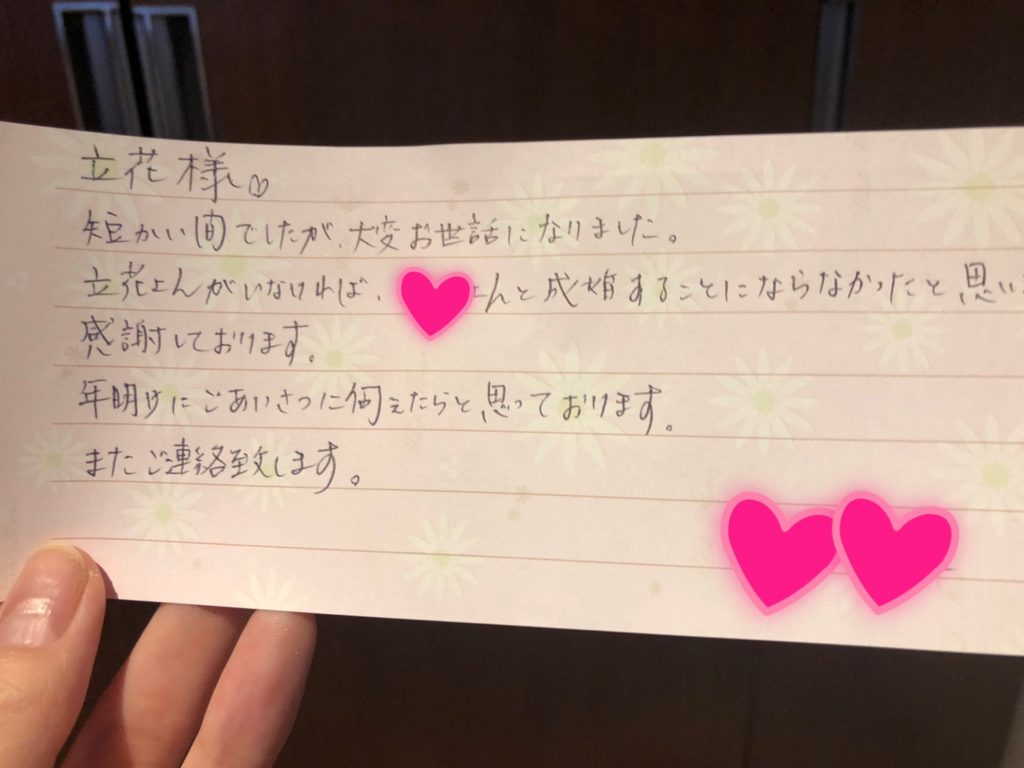 立花様♡
短かい間でしたが、大変お世話になりました。
立花さんがいなければ、さんと成婚することにならなかったと思い
感謝しております。
年明けにごあいさつに伺えたらと思っております。
またご連絡致します。